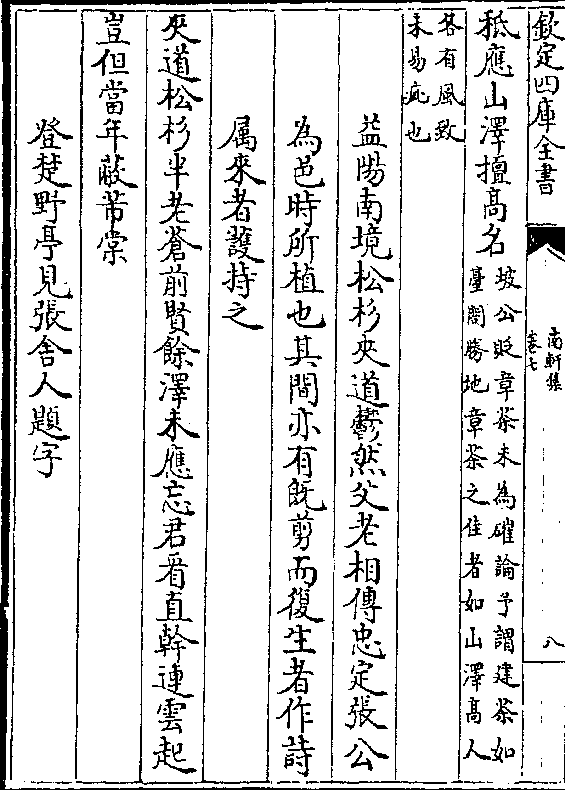 欽定四庫全書
南軒集
卷七
八
秪應山澤擅髙名坡公貶章茶未為確論予謂建茶如
臺閣勝地章茶之佳者如山澤髙人
各有風致
未易疵也
益陽南境松杉夾道鬱然父老相傳忠定張公
為邑時所植也其間亦有既剪而復生者作詩
属來者護持之
夾道松杉半老蒼前賢餘澤未應忘君看直幹連雲起
豈但當年蔽芾棠
登楚野亭見張舍人題字